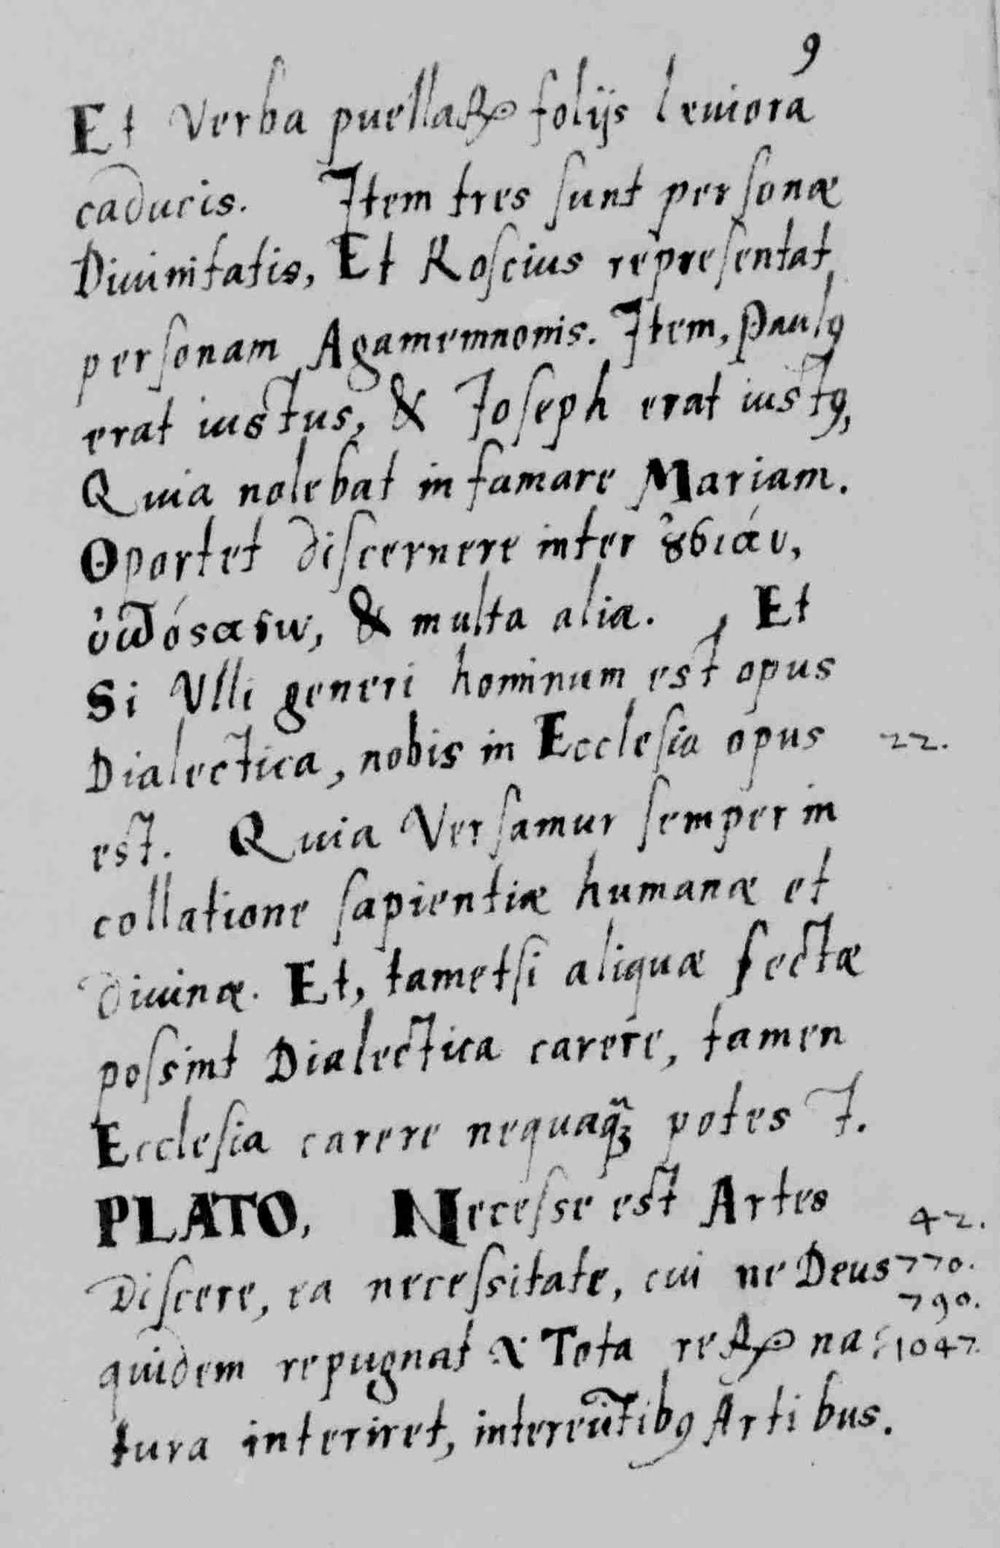 9
Et verba puellaꝝ folijs leuiora
caducis. Item tres sunt personæ
Diuinitatis, Et Roscius repręsentat
personam Agamemnonis. Item, Paulꝯ
erat iustus, & Joseph erat iustꝯ,
Quia nolebat infamare Mariam.
Oportet discernere inter οὐσίαν,
ὑπόστασιν, & multa alia. Et
Si Vlli generi hominum est opus
Dialectica, nobis in Ecclesia opus 22.
est. Quia Versamur semper in
collatione sapientiæ humanæ et
diuinæ. Et, tametsi aliquæ sectæ
possint Dialectica carere, tamen
Ecclesia carere nequaq̃ꝫ potest.
PLATO, Necesse est Artes 42.
Discere, ea necessitate, cui ne Deus 770.
790.
quidem repugnat & Tota reꝝ na: 1047.
tura interiret, intereũtibꝯ Artibus.